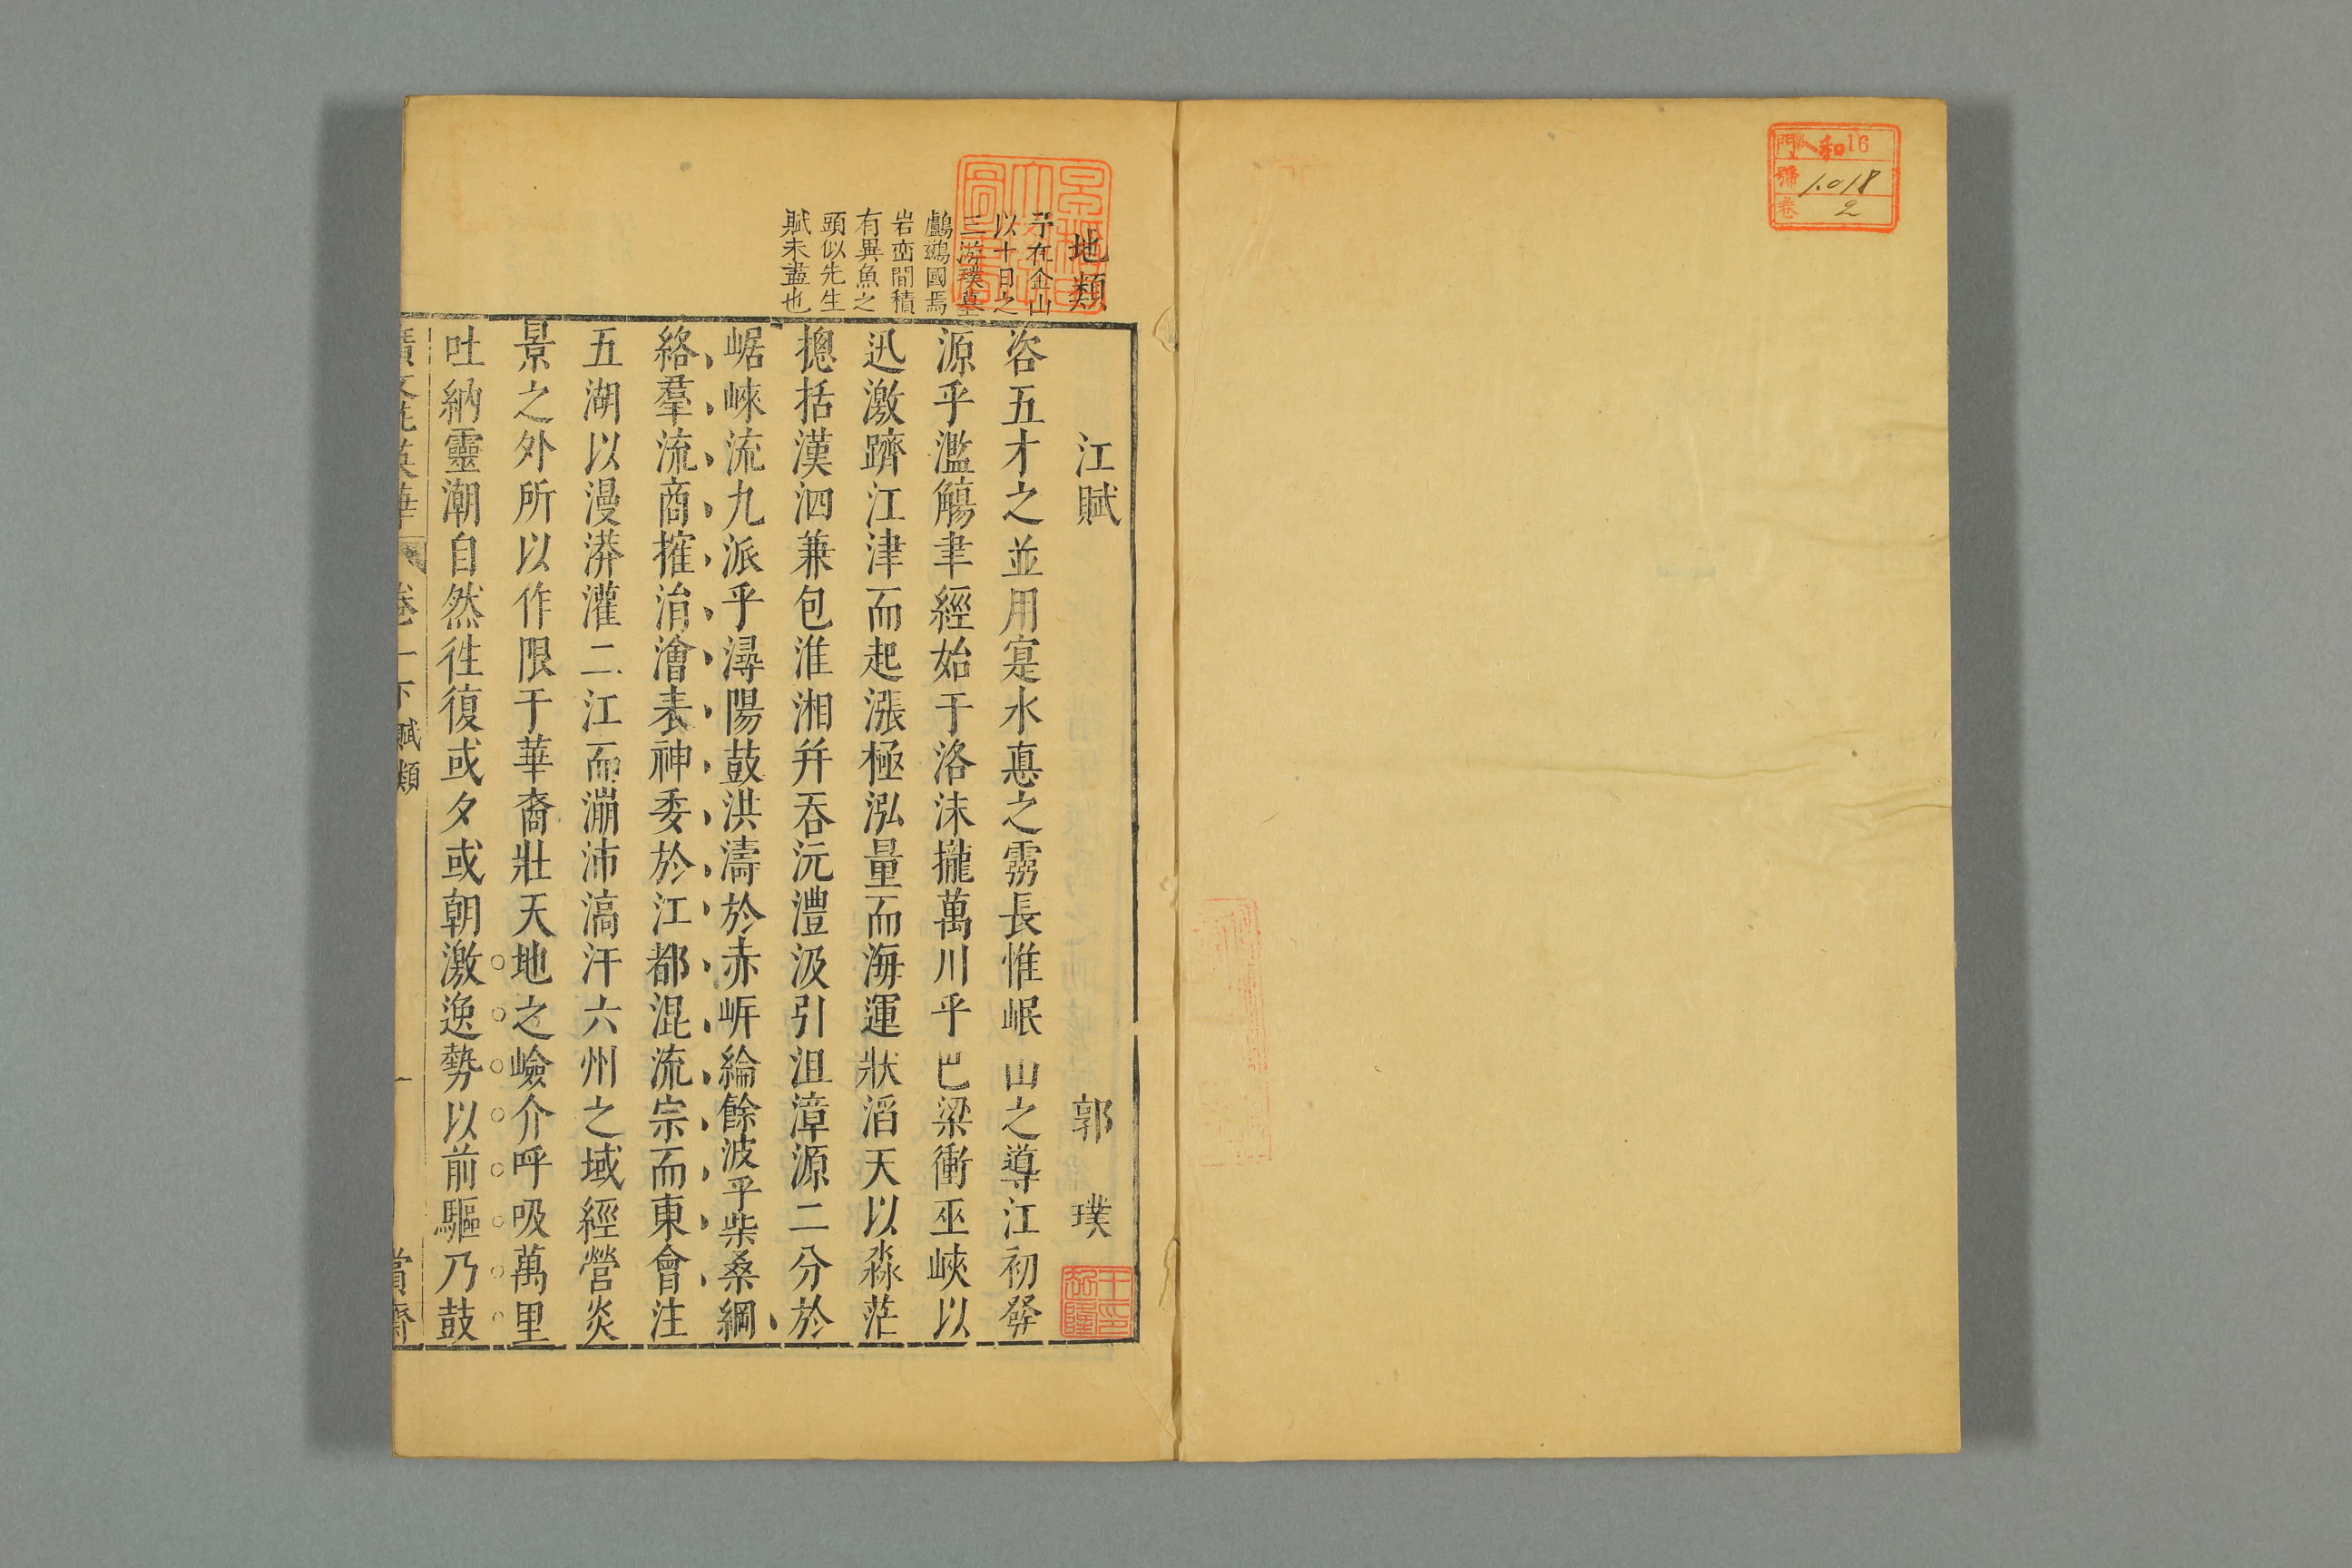 門 人和 16
號 1.018
卷 2
地類
予在金山
以十日之
三游璞墓
鸕鷀國焉
岩峦間積
有異魚之
頭似先生
賦未盡也
江賦 郭璞
咨五才之並用寔水惪之霛長惟岷山之導江初發
源乎濫觴聿經始于洛沬攏萬川乎巴梁衝巫峽以
迅激躋江津而起漲極泓量而海運狀滔天以淼茫
摠括漢泗兼包淮湘并吞沅澧汲引沮漳源二分於
崌崍流九派乎潯陽鼓洪濤於赤岸綸餘波乎柴桑綱
絡羣流商搉涓澮表神委於江都混流宗而東會注
五湖以漫漭灌二江而漰沛滈汗六州之域經營炎
景之外所以作限于華裔壯天地之嶮介呼吸萬里
吐納靈潮自然徃復或夕或朝激逸勢以前驅乃鼓
卷一下 賦類 一